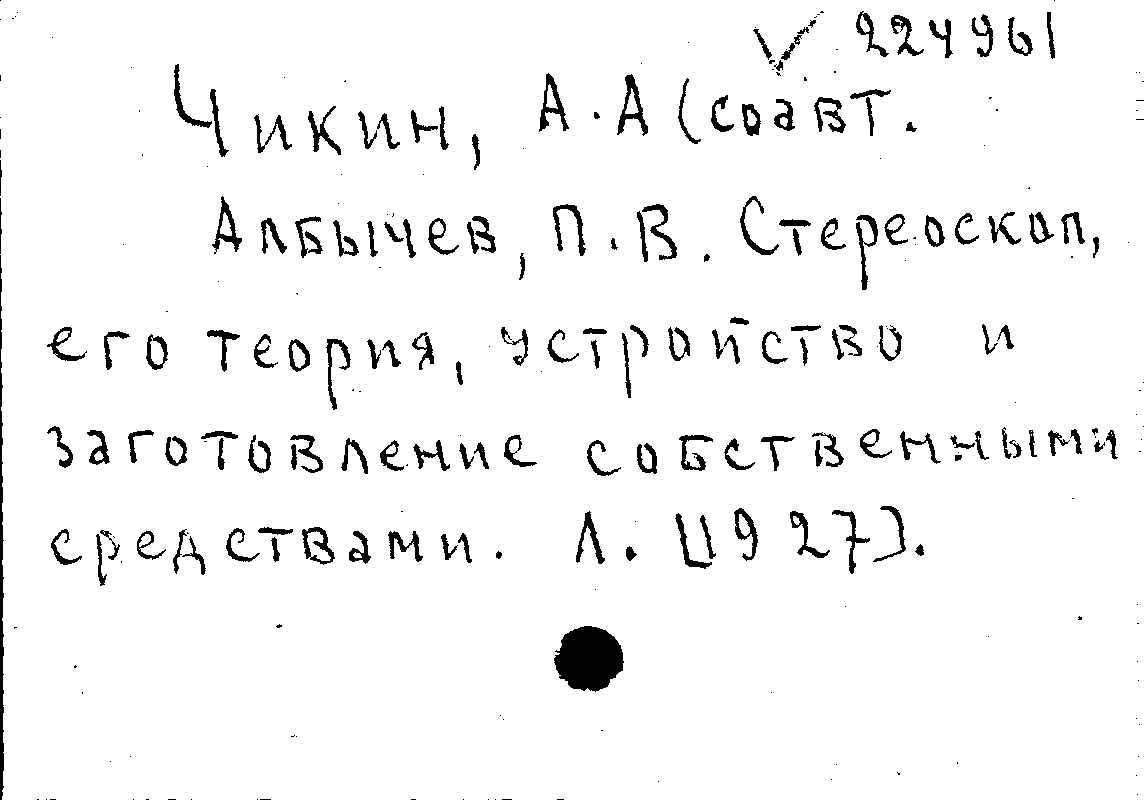 √ 224961
Чикин, А.А (соавт.
Албычев, П.В. Стереоскоп,
его теория, устройство и
заготовление собственными
средствами. Л. [1927].